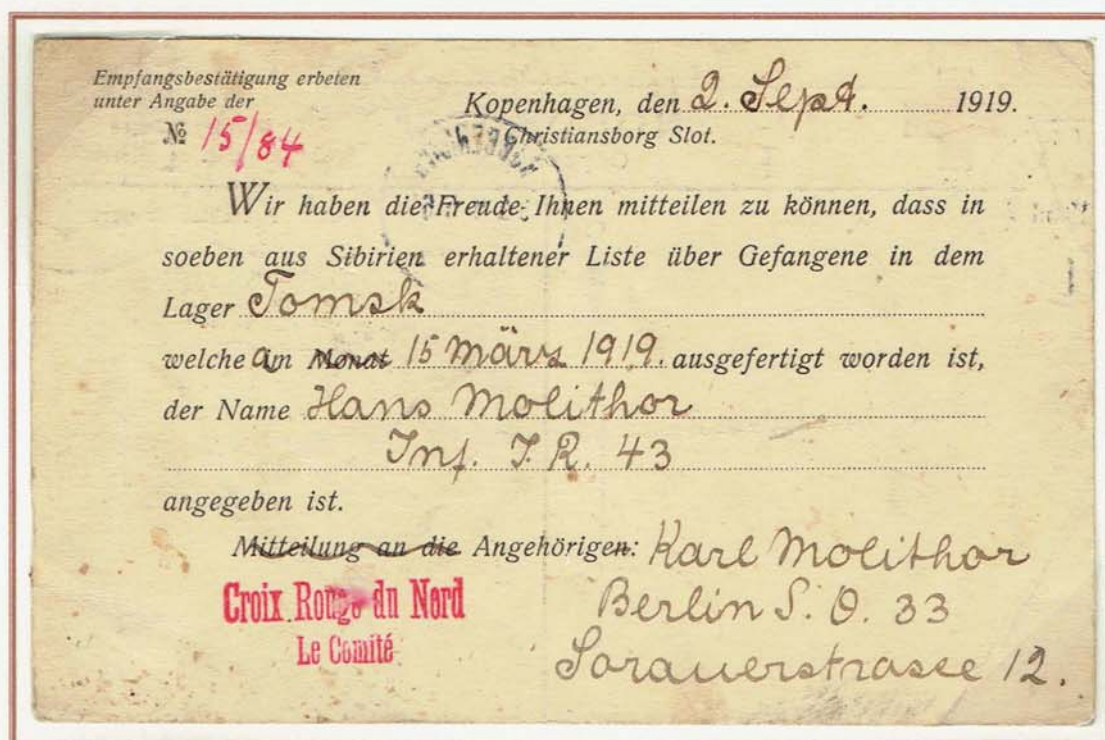 Empfangsbestätigung erbeten
unter Angabe der
№ 15/84
Kopenhagen, den 2. Sept. 1919.
Christiansborg Slot.
Wir haben die Freude Ihnen mitteilen zu können, dass in
soeben aus Sibirien erhaltener Liste über Gefangene in dem
Lager Tomsk
welche am Monat 15 März 1919. ausgefertigt worden ist,
der Name Hans Molithor
Inf. I. R. 43
angegeben ist.
Mitteilung an die Angehörigen: Karl Molithor
Berlin S. O. 33
Sorauerstrasse 12.
Croix Rouge du Nord
Le Comité